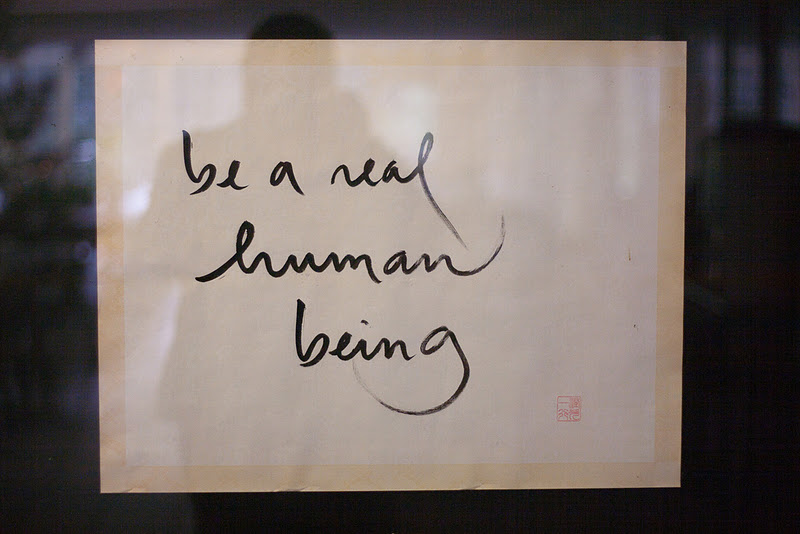 be a real
human
being